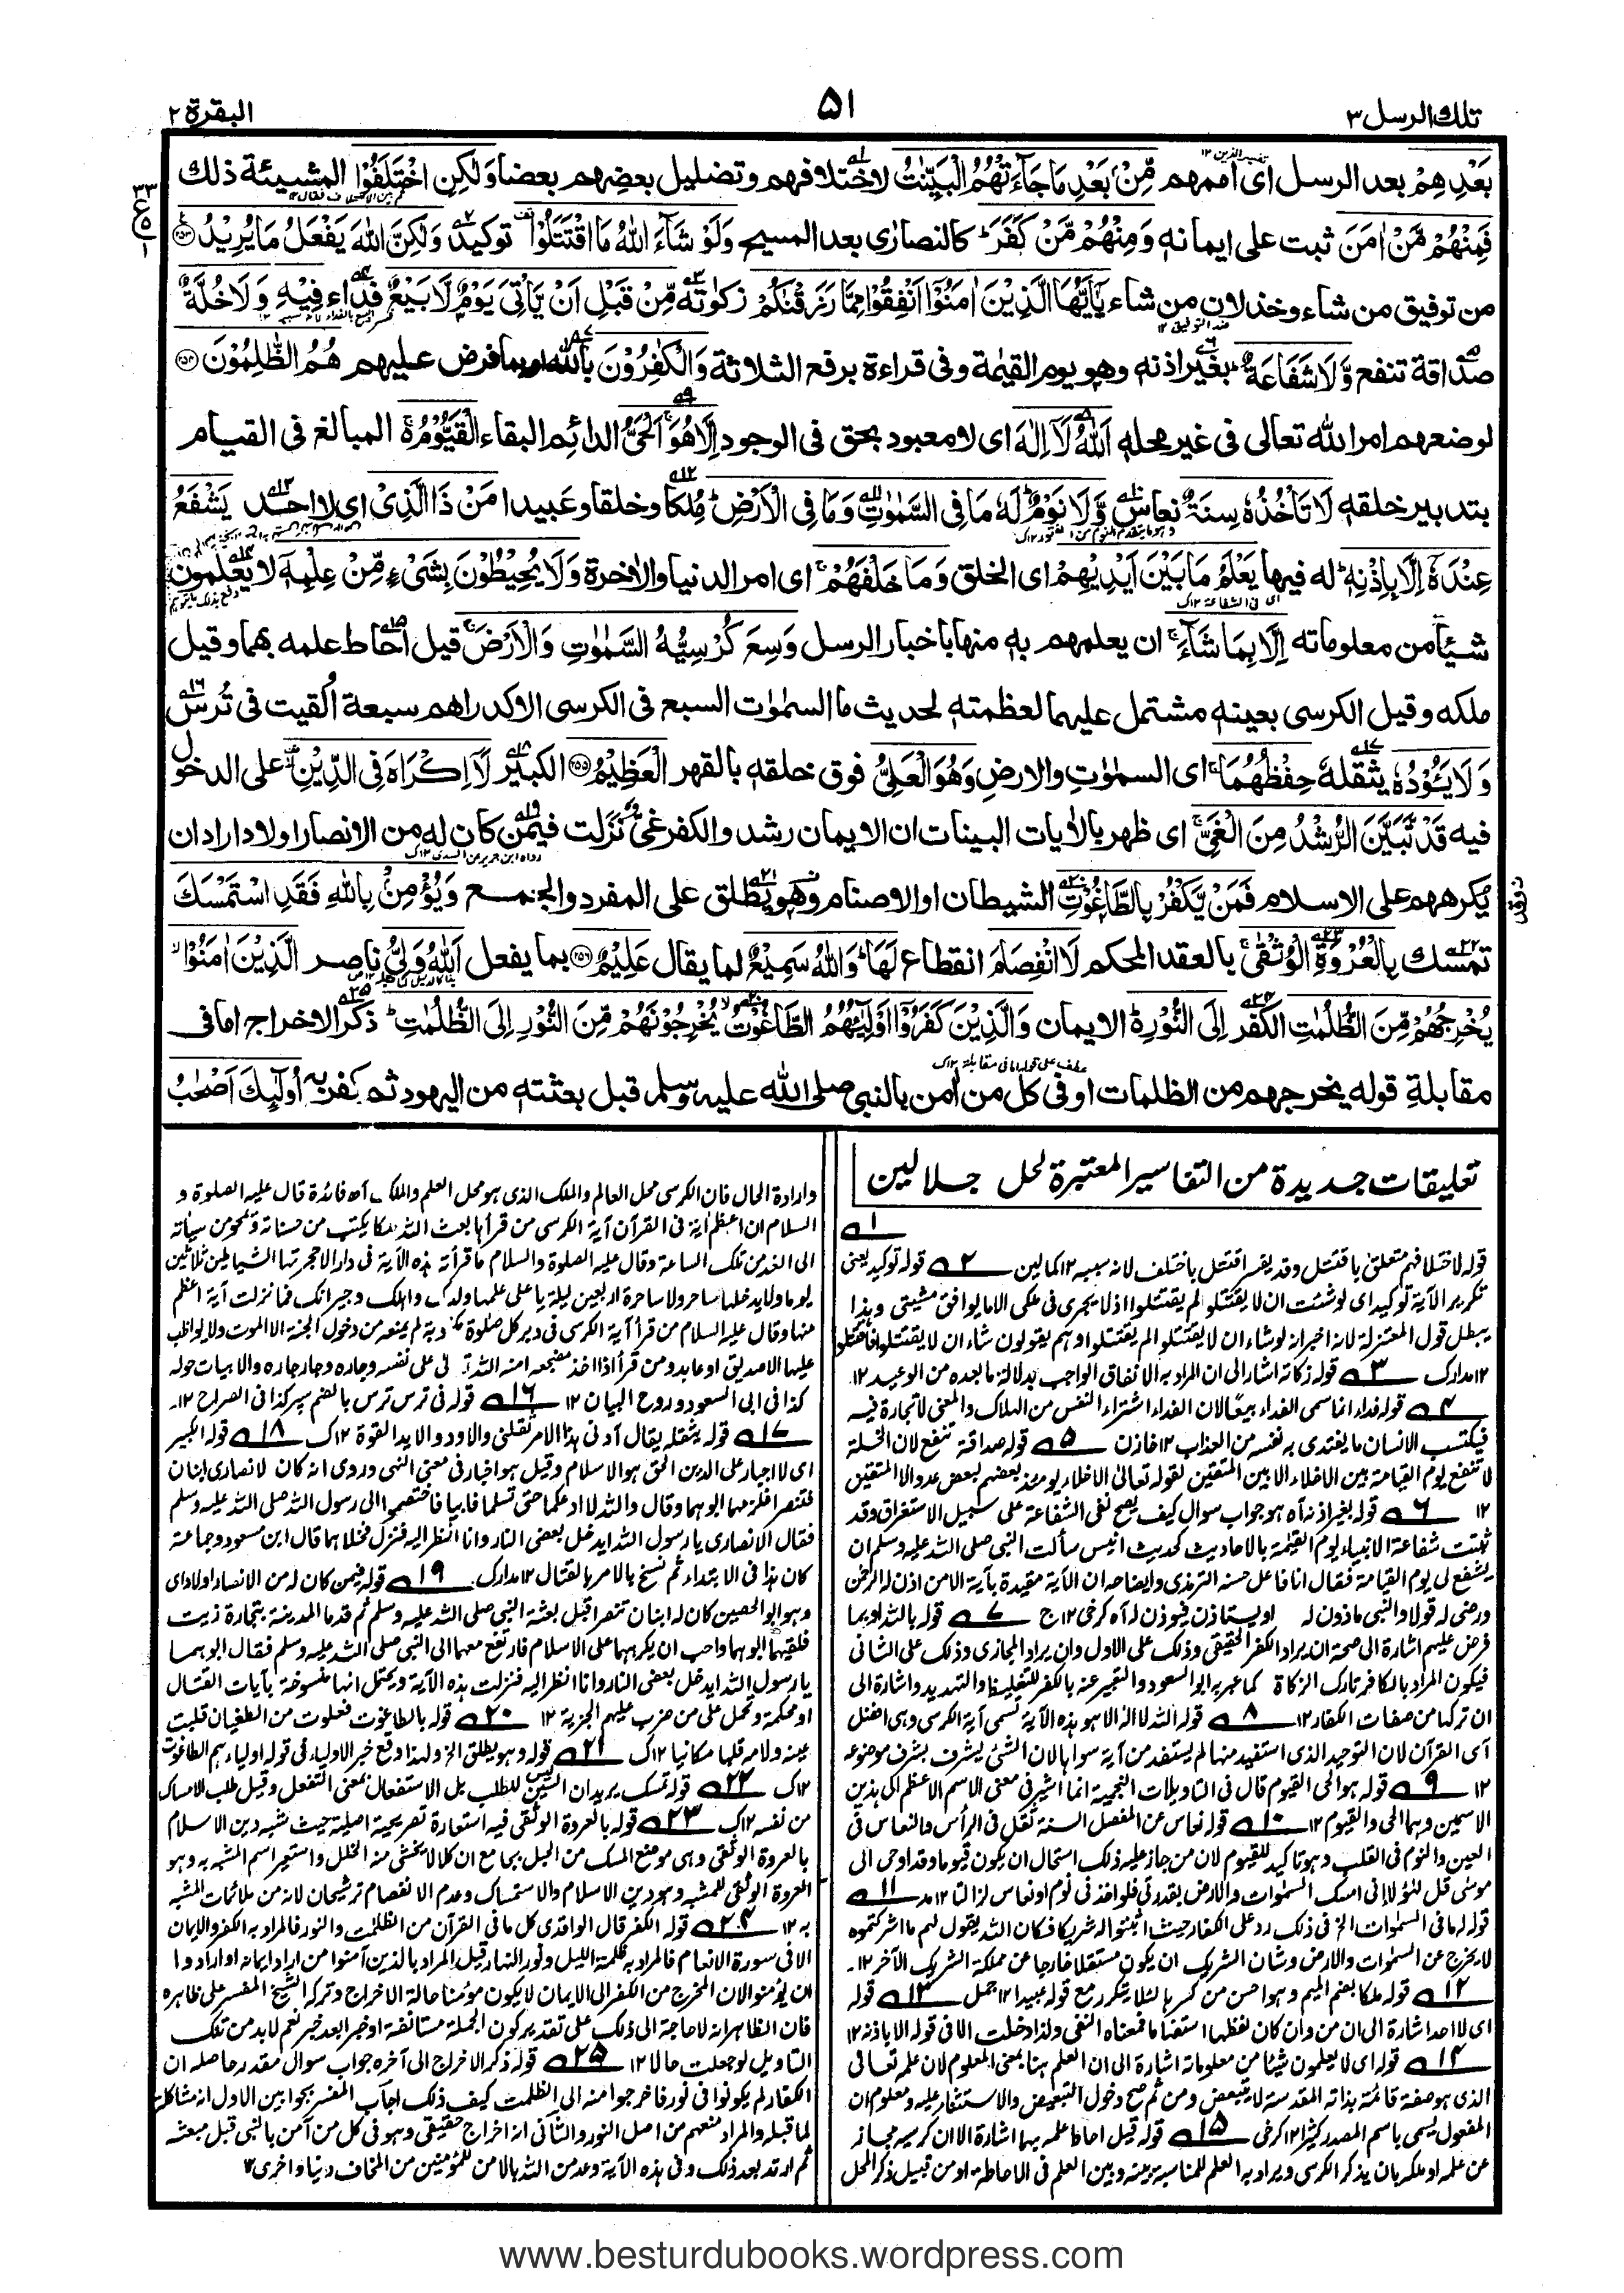 تلك الرسل ٣
٥١
البقرة ٢
بَعْدِهِمْ بعد الرسل اى اممهم مِّنْۢ بَعْدِ مَا جَآءَتْهُمُ الْبَيِّنٰتُ لاختلافهم وتضليل بعضهم بعضا وَلٰكِنِ اخْتَلَفُوْا لمشيئة ذلك
فَمِنْهُمْ مَّنْ اٰمَنَ ثبت على ايمانه وَمِنْهُمْ مَّنْ كَفَرَ ؕ كالنصارى بعد المسيح وَلَوْ شَآءَ اللّٰهُ مَا اقْتَتَلُوْا توكيد وَلٰكِنَّ اللّٰهَ يَفْعَلُ مَا يُرِيْدُ ﴿٢٥٣﴾
من توفيق من شاء وخذلان من شاء يٰٓاَيُّهَا الَّذِيْنَ اٰمَنُوْٓا اَنْفِقُوْا مِمَّا رَزَقْنٰكُمْ زكوٰته مِّنْ قَبْلِ اَنْ يَّاْتِىَ يَوْمٌ لَّا بَيْعٌ فداء فِيْهِ وَلَا خُلَّةٌ
صداقة تنفع وَّلَا شَفَاعَةٌ ؕ بغير اذنه وهو يوم القيٰمة وفى قراءة برفع الثلاثة وَالْكٰفِرُوْنَ بالله او بما فرض عليهم هُمُ الظّٰلِمُوْنَ ﴿٢٥٤﴾
لوضعهم امر الله تعالى فى غير محله اَللّٰهُ لَآ اِلٰهَ اى لا معبود بحق فى الوجود اِلَّا هُوَ ۚ اَلْحَىُّ الدائم البقاء الْقَيُّوْمُ ۚ المبالغ فى القيام
بتدبير خلقه لَا تَاْخُذُهٗ سِنَةٌ نعاس وَّلَا نَوْمٌ ؕ لَهٗ مَا فِى السَّمٰوٰتِ وَمَا فِى الْاَرْضِ ؕ مُلكا وخلقا وعبيدا مَنْ ذَا الَّذِىْ اى لا احد يَشْفَعُ
عِنْدَهٗٓ اِلَّا بِاِذْنِهٖ ؕ له فيها يَعْلَمُ مَا بَيْنَ اَيْدِيْهِمْ اى الخلق وَمَا خَلْفَهُمْ ۚ اى امر الدنيا والاٰخرة وَلَا يُحِيْطُوْنَ بِشَىْءٍ مِّنْ عِلْمِهٖٓ لا يعلمون
شيأ من معلوماته اِلَّا بِمَا شَآءَ ۚ ان يعلمهم به منها باخبار الرسل وَسِعَ كُرْسِيُّهُ السَّمٰوٰتِ وَالْاَرْضَ ۚ قيل احاط علمه بهما وقيل
ملكه وقيل الكرسى بعينه مشتمل عليهما لعظمته لحديث ما السمٰوٰت السبع فى الكرسى الا كدراهم سبعة اُلقيت فى تُرس
وَلَا يَـُٔوْدُهٗ يثقله حِفْظُهُمَا ۚ اى السمٰوٰت والارض وَهُوَ الْعَلِىُّ فوق خلقه بالقهر الْعَظِيْمُ ﴿٢٥٥﴾ الكبير لَآ اِكْرَاهَ فِى الدِّيْنِ على الدخول
فيه قَدْ تَّبَيَّنَ الرُّشْدُ مِنَ الْغَىِّ ۚ اى ظهر بالاٰيات البينات ان الايمان رشد والكفر غى نزلت فيمن كان له من الانصار اولاد اراد ان
يكرههم على الاسلام فَمَنْ يَّكْفُرْ بِالطَّاغُوْتِ الشيطان او الاصنام وهو يطلق على المفرد والجمع وَيُؤْمِنْۢ بِاللّٰهِ فَقَدِ اسْتَمْسَكَ
تمسك بِالْعُرْوَةِ الْوُثْقٰى ۚ بالعقد المحكم لَا انْفِصَامَ انقطاع لَهَا ؕ وَاللّٰهُ سَمِيْعٌ لما يقال عَلِيْمٌ ﴿٢٥٦﴾ بما يفعل اَللّٰهُ وَلِىُّ ناصر الَّذِيْنَ اٰمَنُوْا ۙ
يُخْرِجُهُمْ مِّنَ الظُّلُمٰتِ الكفر اِلَى النُّوْرِ ؕ الايمان وَالَّذِيْنَ كَفَرُوْٓا اَوْلِيٰٓـُٔهُمُ الطَّاغُوْتُ ۙ يُخْرِجُوْنَهُمْ مِّنَ النُّوْرِ اِلَى الظُّلُمٰتِ ؕ ذكر الاخراج اما فى
مقابلةِ قوله يخرجهم من الظلمات او فى كل من اٰمن بالنبى صلى الله عليه وسلم قبل بعثته من اليهود ثم كفر به اُولٰٓئِكَ اَصْحٰبُ
تعليقات جديدة من التفاسير المعتبرة لحل جلالين
١
قوله لاختلافهم متعلق باقتتل وقد يفسر اقتتل باختلف لانه سببه ١٢ كمالين ٢ قوله توكيد يعنى
تكرير الآية توكيد اى لو شئت ان لا يقتتلوا لم يقتتلوا اذ لا يجرى فى ملكى الا ما يوافق مشيتى وهذا
يبطل قول المعتزلة لانه اخبر انه لو شاء ان لا يقتتلوا لم يقتتلوا وهم يقولون شاء ان لا يقتتلوا فاقتتلوا
١٢ مدارك ٣ قوله زكاته اشار الى ان المراد به الانفاق الواجب بدلالة ما بعده من الوعيد ١٢
٤ قوله فداء انما سمى الفداء بيعا لان الفداء اشتراء النفس من الهلاك والمعنى لا تجارة فيه
فيكتسب الانسان ما يفتدى به نفسه من العذاب ١٢ خازن ٥ قوله صداقة تنفع لان الخلة
لا تنفع يوم القيامة بين الاخلاء الا بين المتقين لقوله تعالى الاخلاء يومئذ بعضهم لبعض عدو الا المتقين
١٢ ٦ قوله بغير اذنه آه هو جواب سوال كيف يصح نفى الشفاعة على سبيل الاستغراق وقد
ثبتت شفاعة الانبياء يوم القيٰمة بالاحاديث كحديث انس سألت النبى صلى الله عليه وسلم ان
يشفع لى يوم القيامة فقال انا فاعل حسنه الترمذى وايضاحه ان الآية مقيدة بآية الا من اذن له الرحمن
ورضى له قولا والنبى ماذون له او يستاذن فيوذن له آه كرخى ١٢ ج ٧ قوله بالله او بما
فرض عليهم اشارة الى صحة ان يراد الكفر الحقيقى وذلك على الاول وان يراد المجازى وذلك على الثانى
فيكون المراد بالكافر تارك الزكاة كما عبر به ابو السعود والتعبير عنه بالكفر للتغليظ والتهديد واشارة الى
ان تركها من صفات الكفار ١٢ ٨ قوله الله لا اله الا هو هذه الآية تسمى آية الكرسى وهى افضل
آى القرآن لان التوحيد الذى استفيد منها لم يستفد من آية سواها لان الشئ يشرف بشرف موضوعه
١٢ ٩ قوله هو الحى القيوم قال فى التاويلات النجمية انما اشير فى معنى الاسم الاعظم الى هذين
الاسمين وهما الحى والقيوم ١٢ ١٠ قوله نعاس عن المفصل السنة ثقل فى الرأس والنعاس فى
العين والنوم فى القلب وهو تاكيد للقيوم لان من جاز عليه ذلك استحال ان يكون قيوما وقد اوحى الى
موسى قل لهؤلاء انى امسك السمٰوات والارض بقدرتى فلو اخذنى نوم او نعاس لزالتا ١٢ مد ١١
قوله له ما فى السموات الخ فى ذلك رد على الكفار حيث اثبتوا له شريكا فكان الله يقول لهم ما اشركتموه
لا يخرج عن السموات والارض وشان الشريك ان يكون مستقلا خارجا عن مملكة الشريك الآخر ١٢
١٢ قوله ملكا بضم الميم وهو احسن من كسرها لئلا يتكرر مع قوله عبيدا ١٢ جمل ١٣ قوله
اى لا احد اشارة الى ان من وان كان لفظها استفهاما فمعناه النفى ولذا دخلت الا فى قوله الا باذنه ١٢
١٤ قوله اى لا يعلمون شيئا من معلوماته اشارة الى ان العلم هنا بمعنى المعلوم لان علمه تعالى
الذى هو صفة قائمة بذاته المقدسة لا يتبعض ومن ثم صح دخول التبعيض والاستثناء عليه ومعلوم ان
المفعول يسمى باسم المصدر كثيرا ١٢ كرخى ١٥ قوله قيل احاط علمه بهما اشارة الى ان كرسيه مجاز
عن علمه او ملكه بان يذكر الكرسى ويراد به العلم للمناسبة بينه وبين العلم فى الاحاطة او من قبيل ذكر المحل
وارادة الحال فان الكرسى محل العالم والملك الذى هو محل العلم والملك آه فائدة قال عليه الصلوة و
السلام ان اعظم آية فى القرآن آية الكرسى من قرأها بعث الله ملكا يكتب من حسناته ويمحو من سيأته
الى الغد من تلك الساعة وقال عليه الصلوة والسلام ما قرأت هذه الآية فى دار الا هجرتها الشياطين ثلاثين
يوما ولا يدخلها ساحر ولا ساحرة اربعين ليلة يا على علمها ولدك واهلك وجيرانك فما نزلت آية اعظم
منها وقال عليه السلام من قرأ آية الكرسى فى دبر كل صلوة مكتوبة لم يمنعه من دخول الجنة الا الموت ولا يواظب
عليها الا صديق او عابد ومن قرأ اذا اخذ مضجعه امنه الله على نفسه وجاره وجار جاره والابيات حوله
كذا فى ابى السعود وروح البيان ١٢ ١٦ قوله فى ترس ترس بالضم سپر كذا فى الصراح ١٢
١٧ قوله يثقله يقال آدنى هذا الامر يثقلنى والاود والايد القوة ١٢ ك ١٨ قوله الكبير
اى لا اجبار على الدين الحق هو الاسلام وقيل هو اخبار فى معنى النهى وروى انه كان لانصارى ابنان
فتنصرا فلزمهما ابوهما وقال والله لا ادعكما حتى تسلما فابيا فاختصموا الى رسول الله صلى الله عليه وسلم
فقال الانصارى يا رسول الله ايدخل بعضى النار وانا انظر اليه فنزل فخلاهما قال ابن مسعود وجماعة
كان هذا فى الابتداء ثم نسخ بالامر بالقتال ١٢ مدارك ١٩ قوله فيمن كان له من الانصار اولاد اى
وهو ابو الحصين كان له ابنان تنصرا قبل بعثة النبى صلى الله عليه وسلم ثم قدما المدينة بتجارة زيت
فلقيهما ابوهما واحب ان يكرههما على الاسلام فارتفع معهما الى النبى صلى الله عليه وسلم فقال ابوهما
يا رسول الله ايدخل بعضى النار وانا انظر اليه فنزلت هذه الآية ويحتمل انها منسوخة بآيات القتال
او محكمة وتحمل على من ضرب عليهم الجزية ١٢ ٢٠ قوله بالطاغوت فعلوت من الطغيان قلبت
عينه ولامه قلبا مكانيا ١٢ ك ٢١ قوله وهو يطلق الخ ولهذا وقع خبر الاولياء فى قوله اولياءهم الطاغوت
١٢ ك ٢٢ قوله تمسك يريد ان السين ليس للطلب بل الاستفعال بمعنى التفعل وقيل طلب للامساك
من نفسه ١٢ ك ٢٣ قوله بالعروة الوثقى فيه استعارة تصريحية اصلية حيث شبه دين الاسلام
بالعروة الوثقى وهى موضع المسك من الحبل بجامع ان كلا لا يخشى منه الخلل واستعير اسم المشبه به وهو
العروة الوثقى للمشبه وهو دين الاسلام والاستمساك وعدم الانفصام ترشيحان لانه من ملائمات المشبه
به ١٢ ٢٤ قوله الكفر قال الواقدى كل ما فى القرآن من الظلمٰت والنور فالمراد به الكفر والايمان
الا فى سورة الانعام فالمراد به ظلمة الليل ونور النهار قيل المراد بالذين آمنوا من اراد ايمانه او ارادوا
ان يؤمنوا لان المخرج من الكفر الى الايمان لا يكون مؤمنا حالة الاخراج وتركه الشيخ المفسر على ظاهره
فان الظاهر انه لا حاجة الى ذلك على تقدير كون الجملة مستانفة او خبرا بعد خبر نعم لابد من تلك
التاويل لو جعلت حالا ١٢ ٢٥ قوله ذكر الاخراج الى آخره جواب سوال مقدر حاصله ان
الكفار لم يكونوا فى نور فاخرجوا منه الى الظلمت كيف ذلك اجاب المفسر بجوابين الاول انه مشاكلة
لما قبله والمراد منعهم من اصل النور والثانى انه اخراج حقيقى وهو فى كل من آمن بالنبى قبل مبعثه
ثم ارتد بعد ذلك وفى هذه الآية وعد من الله بالامن للمؤمنين من المخاف دنيا واخرى ١٢
www.besturdubooks.wordpress.com